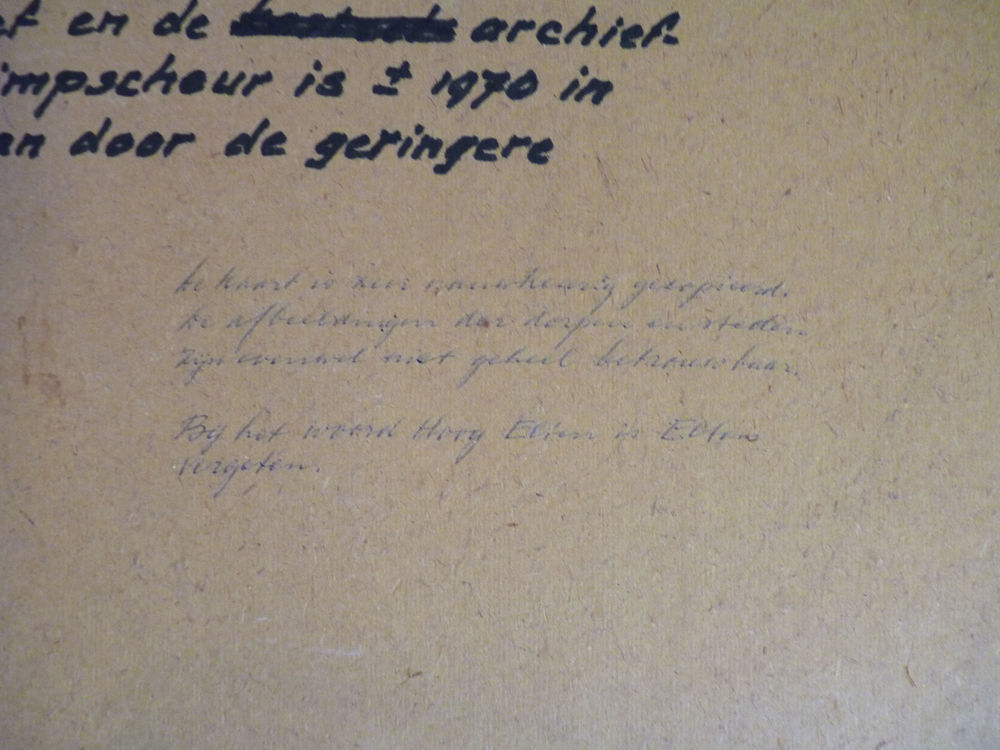 ef en de archief-
impscheur is ± 1970 in
an door de geringere
de kaart is zeer nauwkeurig gecopieerd.
De afbeeldingen der dorpen en steden
zijn evenwel niet geheel betrouwbaar.
Bij het woord Hoog Elten is Elten
vergeten.